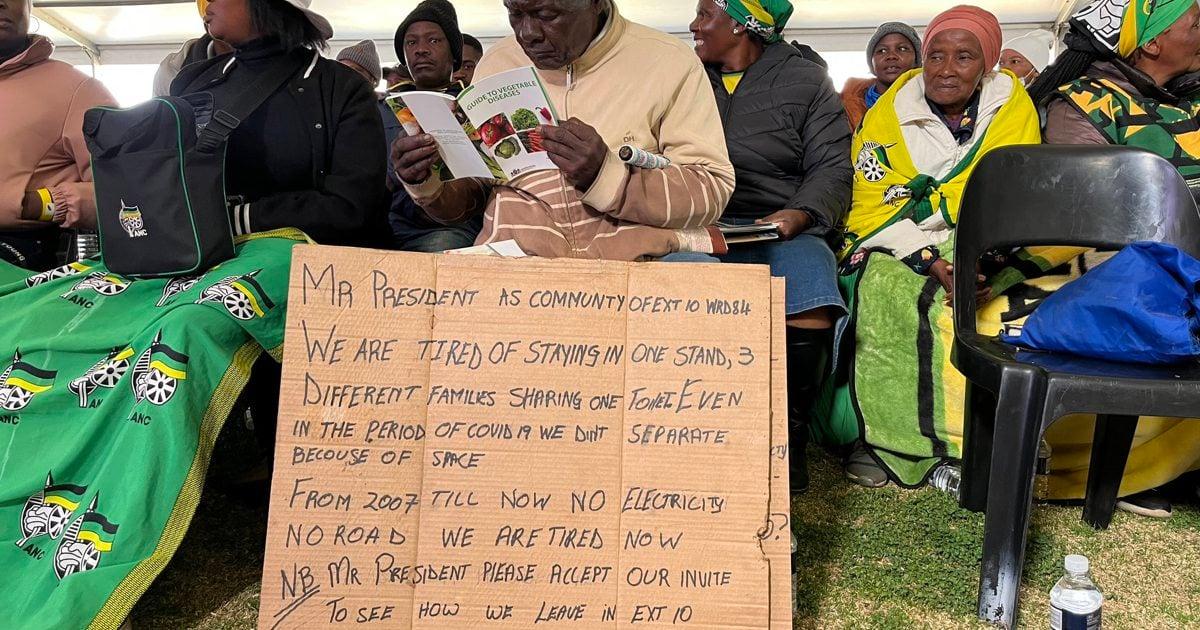 GUIDE TO VEGETABLE
DISEASES
DH
ANC
ANC
ANC
ANC
ANC
ANC
MR PRESIDENT AS COMMUNTY OF EXT 10 WRD84
WE ARE TIRED OF STAYING IN ONE STAND, 3
DIFFERENT FAMILIES SHARING ONE TOILET EVEN
IN THE PERIOD OF COVID 19 WE DINT SEPARATE
BECOUSE OF SPACE
FROM 2007 TILL NOW NO ELECTRICITY
NO ROAD WE ARE TIRED NOW
NB MR PRESIDENT PLEASE ACCEPT OUR INVITE
TO SEE HOW WE LEAVE IN EXT 10